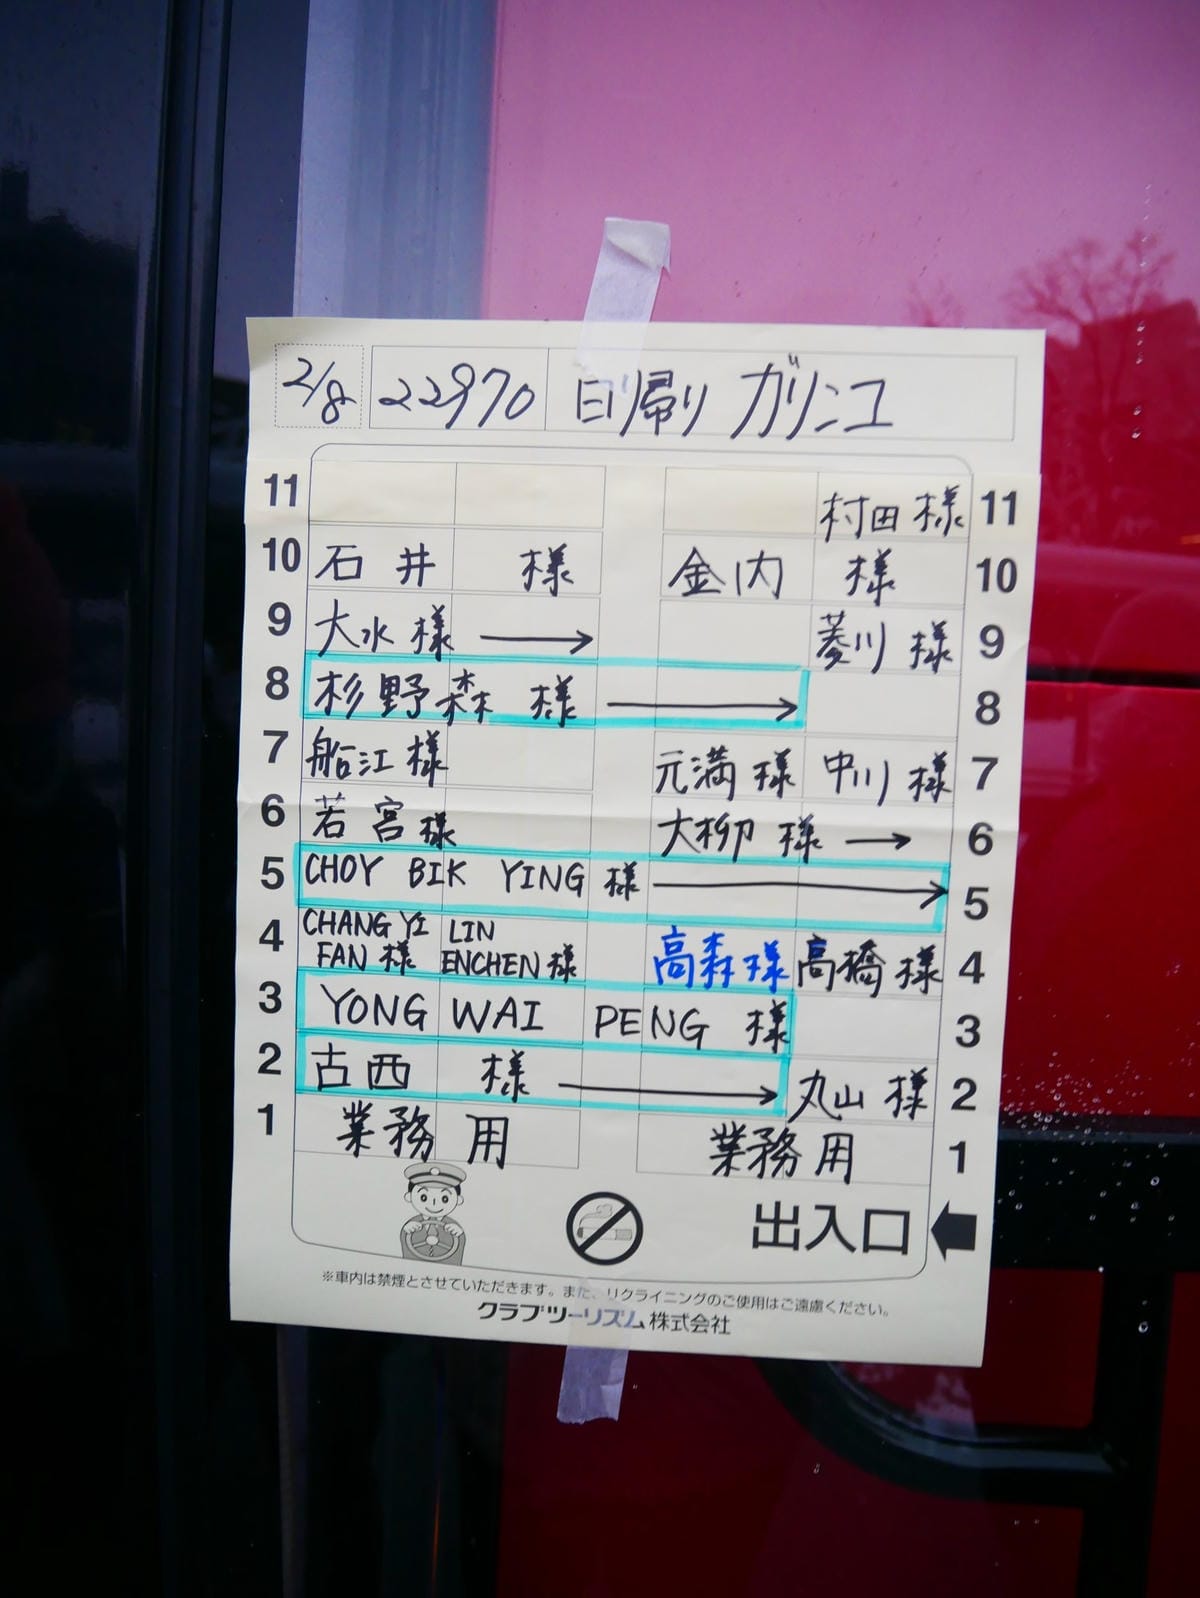 2/8 22970 日帰り ガリンコ
11 村田 様 11
10 石井 様 金内 様 10
9 大水 様 → 菱川 様 9
8 杉野森 様 → 8
7 船江 様 元満 様 中川 様 7
6 若宮 様 大柳 様 → 6
5 CHOY BIK YING 様 → 5
4 CHANG YI FAN 様 LIN ENCHEN 様 高森 様 高橋 様 4
3 YONG WAI PENG 様 3
2 古西 様 → 丸山 様 2
1 業務用 業務用 1
出入口
※車内は禁煙とさせていただきます。また、リクライニングのご使用はご遠慮ください。
クラブツーリズム株式会社